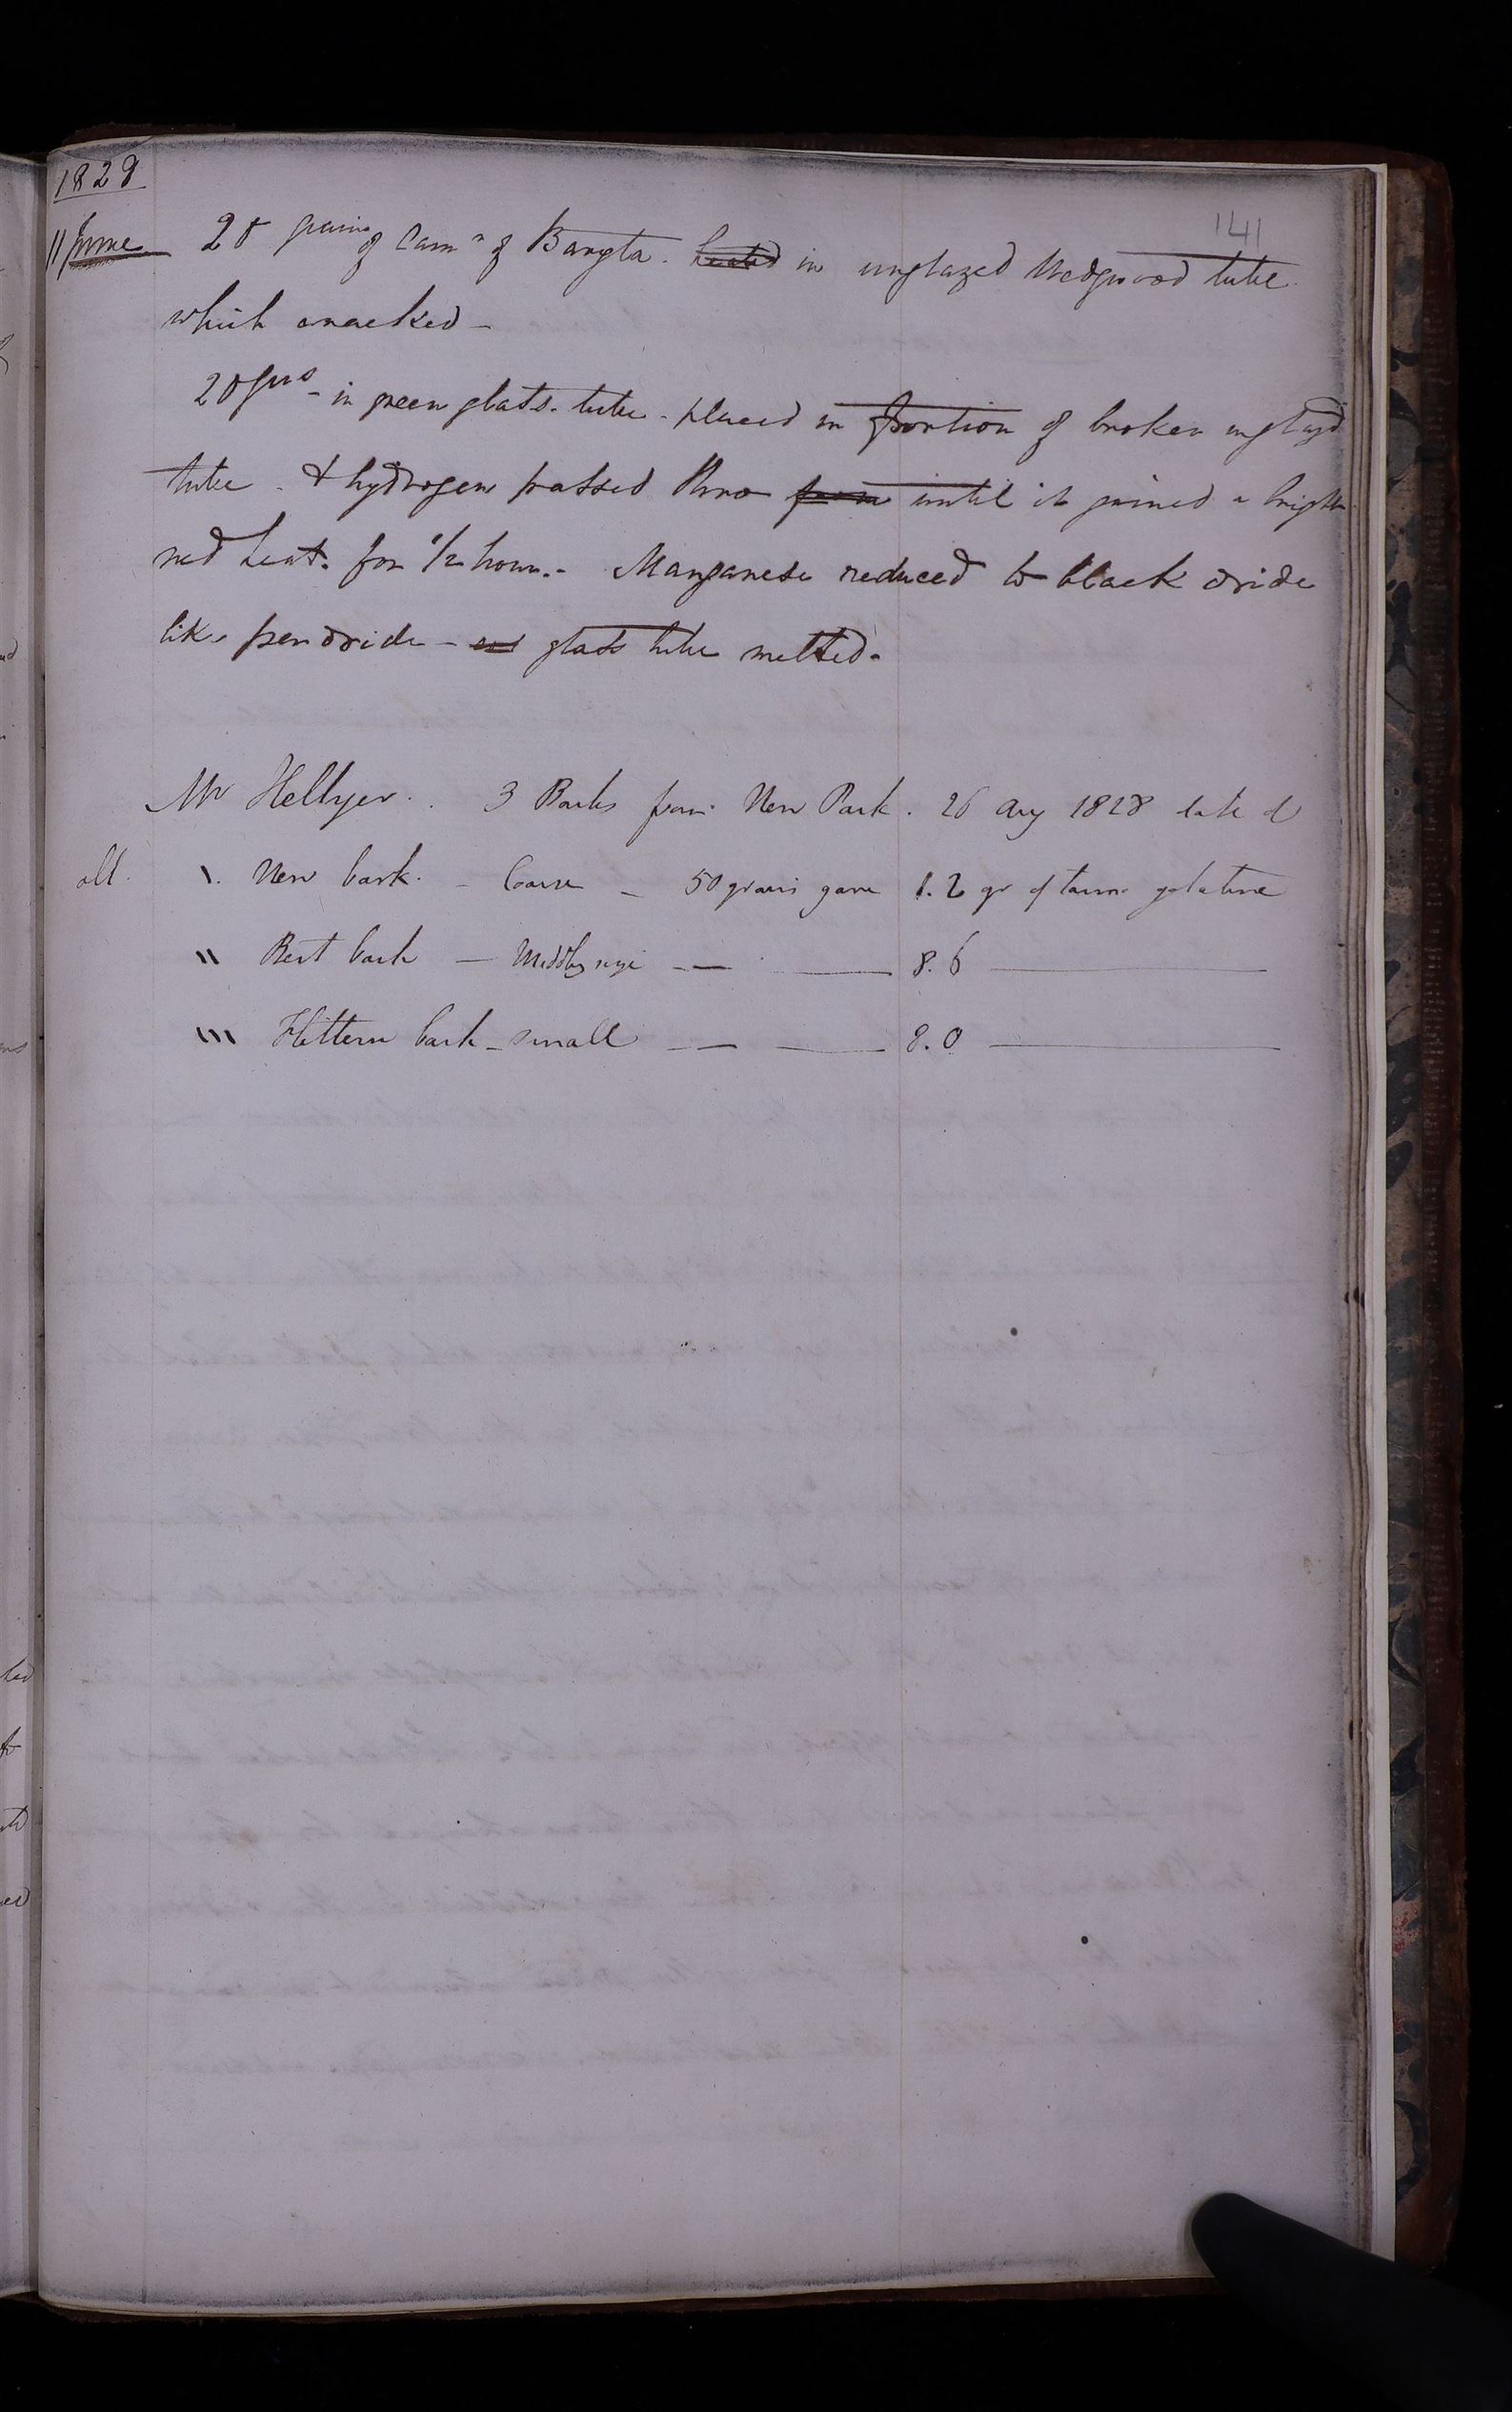 1828
141
11 June 20 grains of Carn of Bangta. heated in unglazed Wedgwood tube
which cracked -
20 grns - in green glass tube - placed in portion of broken unglazd
tube - & hydrogen passed thro from until it gained a bright
red heat. for 1/2 hour. - Manganese reduced to black oxide
like peroxide - and glass tube melted.
Mr Hellyer. 3 Barks from New Park. 26 Aug 1828
old. \. New bark. - Coarse - 50 grains gave 1.2 gr of tann. gelatine
\\ Best bark - Middling size - - 8.6 -
\\\ Flittern bark - small - - 8.0 -